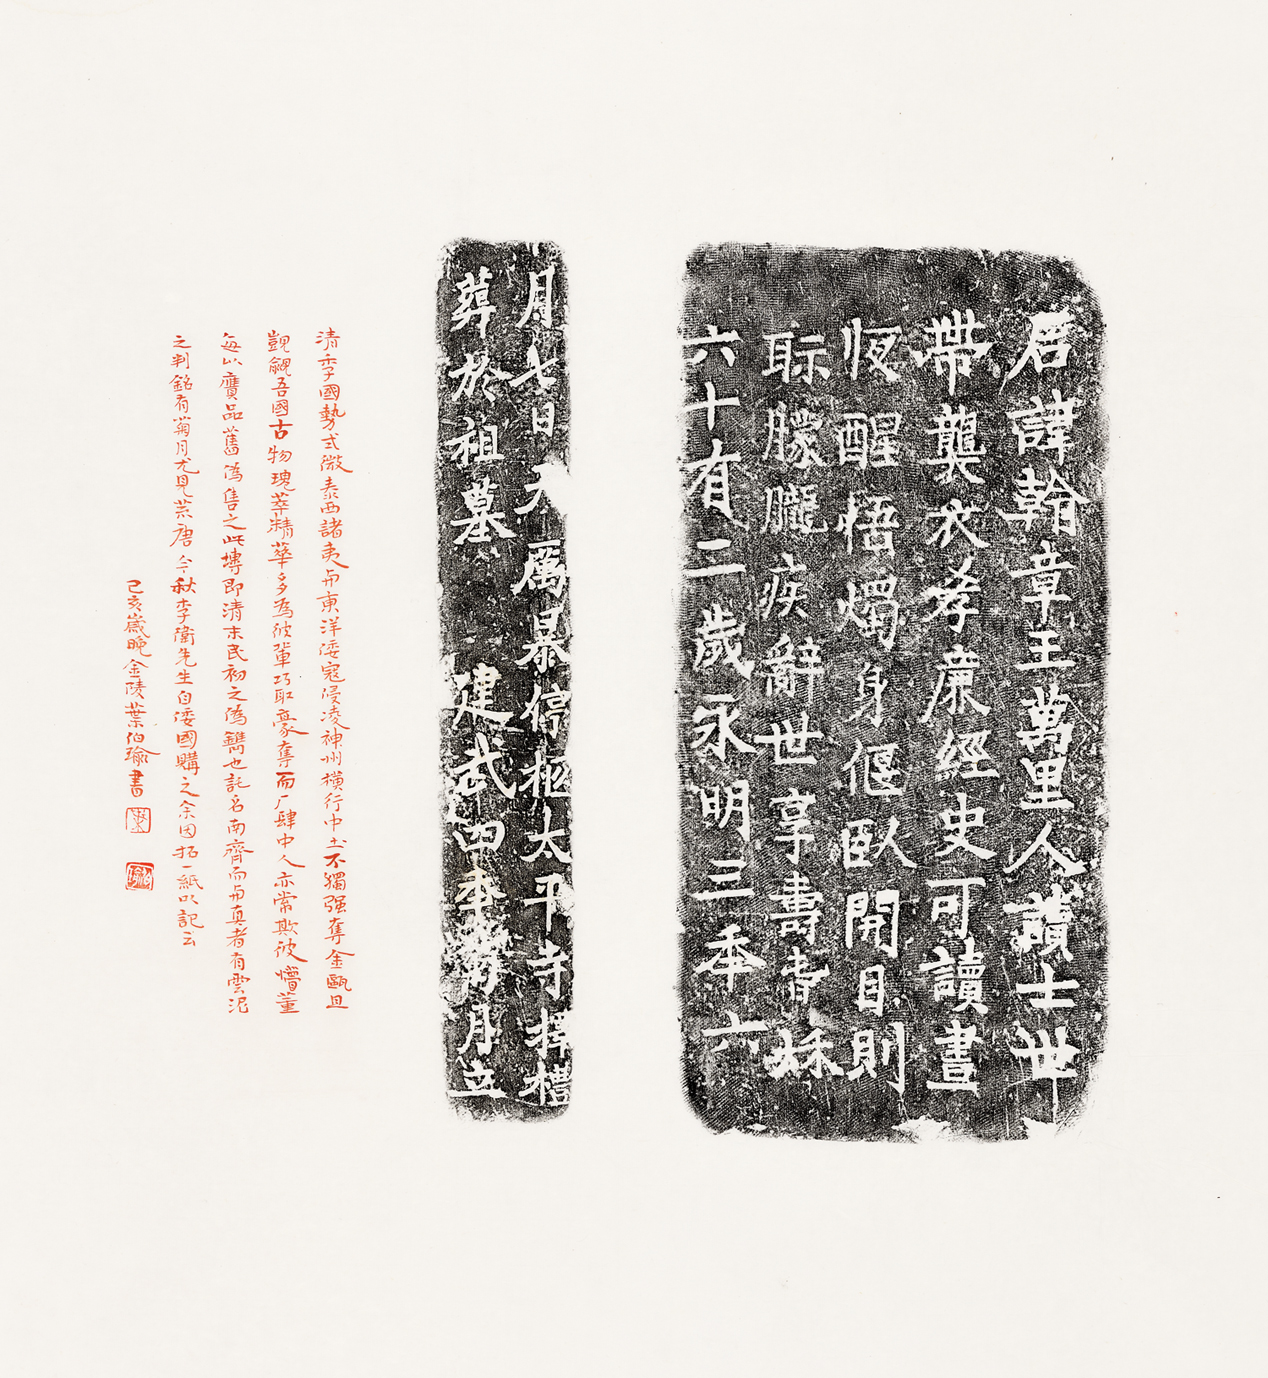 君諱翰章王萬里人讀士世
帶襲衣孝廉經史可讀晝
夜醒悟燭身偃臥開目則
眎朦朧疾辭世享壽耆秌
六十有二歲永明三秊六
月七日天厲暴停柩太平寺擇禮
葬於祖墓 建武四秊菊月立
清季國勢式微泰西諸夷與東洋倭寇侵凌神州橫行中土不獨强奪金甌且
覬覦吾國古物瑰萃精華多為彼輩巧取豪奪而厂肆中人亦常欺彼懵董
每以贗品舊偽售之此塼即清末民初之偽鐫也託名南齊而與真者有雲泥
之判銘有菊月尤見荒唐今秋李衛先生自倭國購之余因拓一紙以記云
己亥歲晚金陵葉伯瑜書